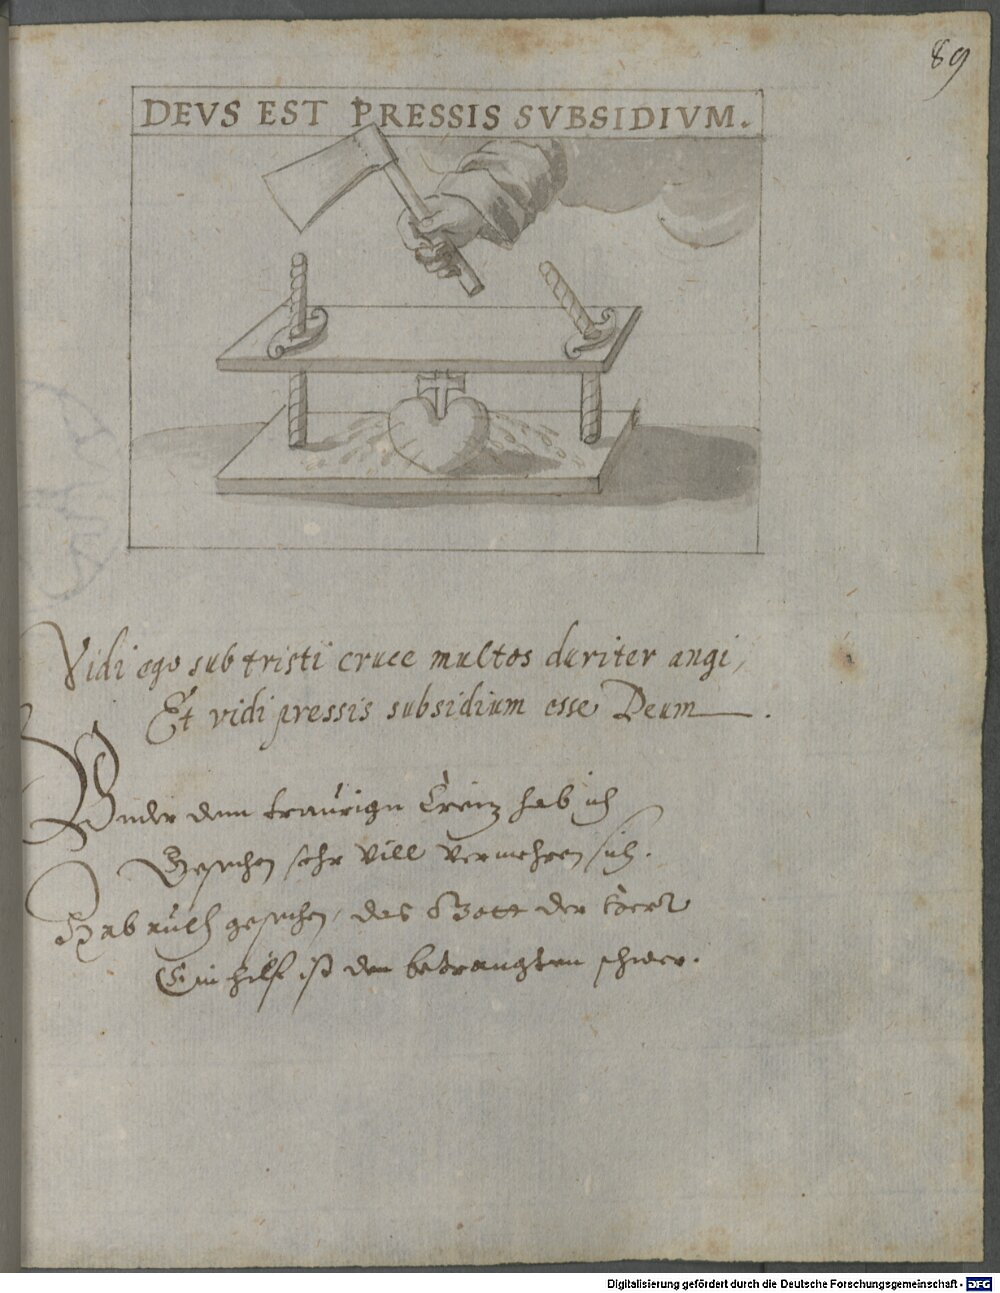 89
DEVS EST PRESSIS SVBSIDIVM.
Vidi ego sub tristi cruce multos duriter angi,
Et vidi pressis subsidium esse Deum.
Vnder dem traurign Creuz hab ich
Gesechen sehr vill vermehren sich.
Hab auch gesechen, das Gott der
Ein hilf ist den betrangten schwer.
Digitalisierung gefördert durch die Deutsche Forschungsgemeinschaft - DFG